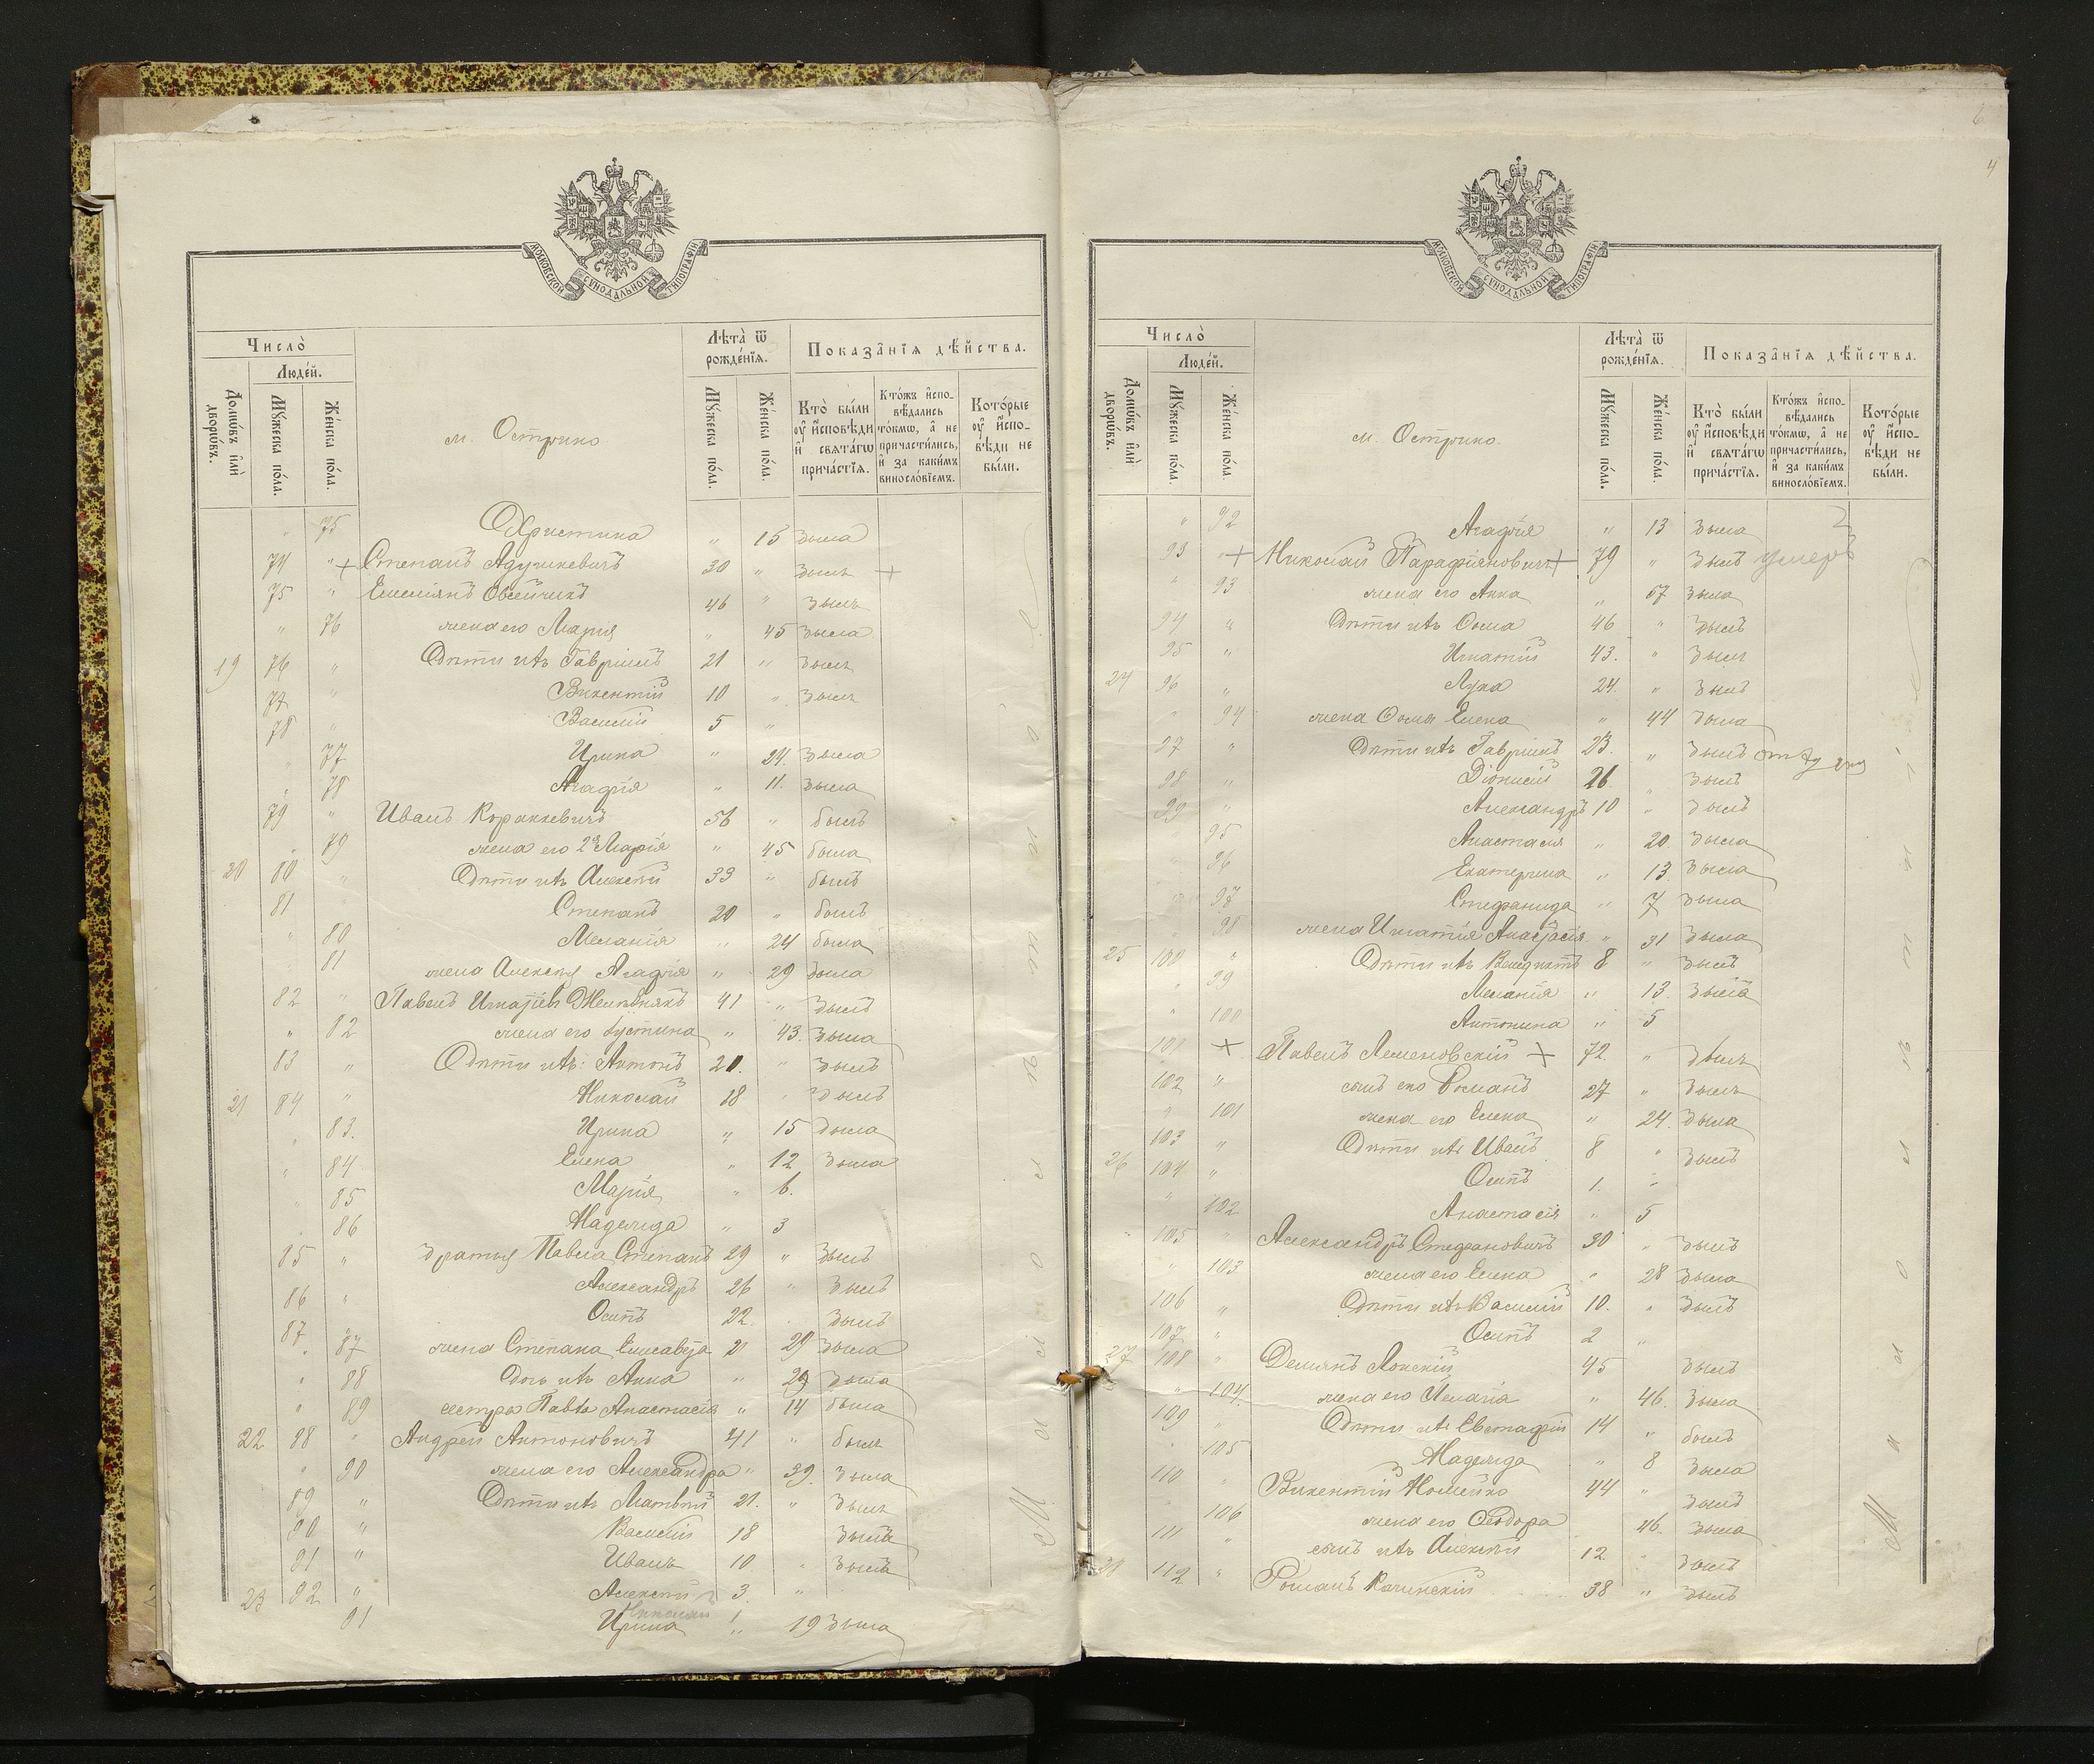 МОСКОВСКОЙ СѴНОДАЛЬНОЙ ТИПОГРАФІИ
Число̀
Людей.
Домѡвъ и҆лѝ дворѡвъ.
Мꙋжеска пола.
Женска пола.
м. Острино
Лѣта̀ ѿ рожденїѧ.
Мꙋжеска пола.
Женска пола.
Показанїѧ дѣйства.
Кто̀ были оу҆ и҆сповѣди и҆ свѧтагѡ причастїѧ.
Кто́жъ и҆сповѣдались то́кмѡ, а҆ не причастились, и҆ за какимъ винословїемъ.
Которые оу҆ и҆сповѣди не были.
" 75 Христина " 15 была
74 " + Степанъ Адушкевичъ 30 " былъ +
75 " Емелiянъ Овсейчикъ 46 " былъ
" 76 жена его Марiя " 45 была
19 76 " Дѣти ихъ Гавріилъ 21 " былъ
77 " Викентій 10 " былъ
78 " Василій 5 "
" 77 Ирина " 24. была
" 78 Агафія " 11. была
79 " Иванъ 56 " былъ
" 79 жена его 2я Марія " 45 была
20 80 " Дѣти ихъ Алексѣй 33 " былъ
81 Степанъ 20 " былъ
" 80 Меланія " 24 была
81 жена Алексѣя Агафія " 29 была
82 " Павелъ Игнатіевъ 41 " былъ
" 82 жена его Іустина " 43. была
83 " Дѣти ихъ: Антонъ 20. " былъ
21 84 " Николай 18 " былъ
" 83. Ирина " 15 была
" 84 Елена " 12 была
" 85 Марія " 6.
86 Надежда " 3
85 " братья Павла Степанъ 29 " былъ
86 " Александръ 26 " былъ
87 " Осипъ 22. " былъ
" 87 жена Степана Елисавета 21 29 была
" 88 Дочь ихъ Анна " 29 была
" 89 сестра Павла Анастасія " 14 была
22 88 " Андрей Антоновичъ 41 " былъ
" 90 жена его Александра " 39. была
89 " Дѣти ихъ Матвѣй 21. " былъ
90 " Василій 18 былъ
91 " Иванъ 10 " былъ
23 92 " Алексѣй 3. "
Николай 1
91 Ирина " 19 была
4
МОСКОВСКОЙ СѴНОДАЛЬНОЙ ТИПОГРАФІИ
Число̀
Людей.
Домѡвъ и҆лѝ дворѡвъ.
Мꙋжеска пола.
Женска пола.
м. Острино.
Лѣта̀ ѿ рожденїѧ.
Мꙋжеска пола.
Женска пола.
Показанїѧ дѣйства.
Кто̀ были оу҆ и҆сповѣди и҆ свѧтагѡ причастїѧ.
Кто́жъ и҆сповѣдались то́кмѡ, а҆ не причастились, и҆ за какимъ винословїемъ.
Которые оу҆ и҆сповѣди не были.
" 92 Агафія " 13 была 2
93 " + Николай Парафіяновичъ + 79 " былъ умеръ
" 93 жена его Анна " 57 была
94 " Дѣти ихъ Ѳома 46 " былъ
95 " Игнатій 43. " былъ
24 96 " Лука 24. " былъ
" 94 жена Ѳомы Елена " 44 была
97 " Дѣти ихъ Гавріилъ 23. " былъ
98 " Діонисій 26. " былъ
99 " Александръ 10 " былъ
95 Анастасія " 20. была
" 96 Екатерина " 13. была
" 97 Стефанида " 7 была
" 98 жена Игнатія Анастасія " 31 была
25 100 " Дѣти ихъ Венедиктъ 8 " былъ
" 99 Меланія " 13. была
" 100 Антонина " 5
101 + Павелъ + 72. " былъ
102 " сынъ его Романъ 27 " былъ
" 101 жена его Елена " 24. была
103 " Дѣти ихъ Иванъ 8 " былъ
26 104 " Осипъ 1. "
" 102 Анастасія " 5
105 " Александръ Стефановичъ 30 " былъ
" 103 жена его Елена " 28 была
106 " Дѣти ихъ Василій 10. " былъ
107 " Осипъ 2 "
27 108 " Демянъ Лонскій 45 былъ
" 104. жена его Пелагія " 46. была
109 " Дѣти ихъ Евстафій 14 " былъ
" 105 Надежда " 8 была
110 " Викентій Номейко 44 " былъ
" 106 жена его Ѳеодора 46. была
111 " сынъ ихъ Алексѣй 12. " былъ
28 112 " Романъ Качинскій 38 " былъ